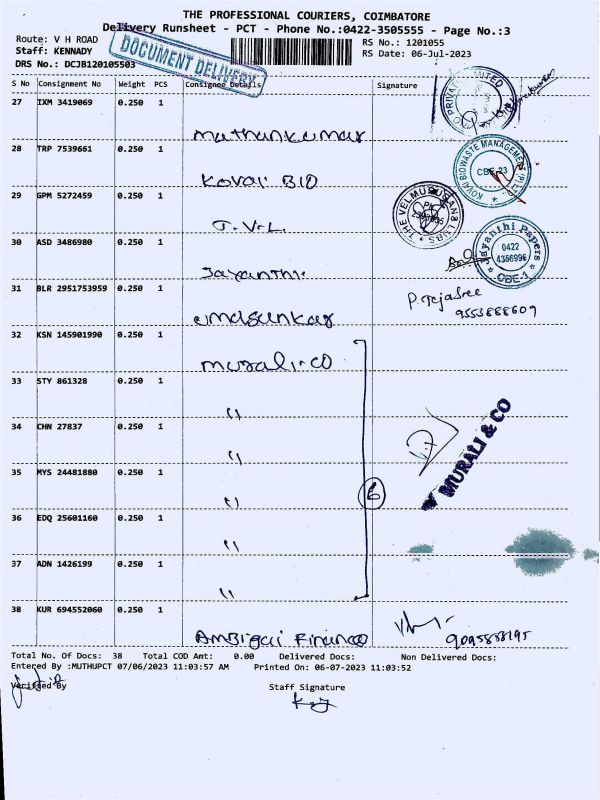 THE PROFESSIONAL COURIERS, COIMBATORE
Delivery Runsheet - PCT - Phone No.:0422-3505555 - Page No.:3
Route: V H ROAD
Staff: KENNADY
DRS No.: DCJB120105503
DOCUMENT DELIVERY
RS No.: 1201055
RS Date: 06-Jul-2023
S No Consignment No Weight PCS Consignee Details Signature
27 IXM 3419069 0.250 1
Mathankumar
28 TRP 7539661 0.250 1
Kovai BIO
KOVAI BIOWASTE MANAGEMENT (P) LTD
CBE-23
29 GPM 5272459 0.250 1
J.V.L.
THE VELMURUGAN
30 ASD 3486980 0.250 1
Jayanthi.
Jayanthi Papers
0422
4366996
CBE-1
31 BLR 2951753959 0.250 1
Umasunkar
P. Tejasree
9553888609
32 KSN 145901990 0.250 1
Murali-co
33 STY 861328 0.250 1
"
34 CHN 27837 0.250 1
"
MURALI & CO
35 MYS 24481880 0.250 1
"
6
36 EDQ 25601160 0.250 1
"
37 ADN 1426199 0.250 1
"
38 KUR 694552060 0.250 1
Ambigai Finance
Total No. Of Docs: 38 Total COD Amt: 0.00 Delivered Docs: Non Delivered Docs:
Entered By :MUTHUPCT 07/06/2023 11:03:57 AM Printed On: 06-07-2023 11:03:52
Verified By
Staff Signature